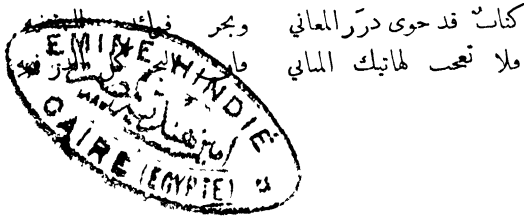 كتابٌ قد حوى درّر المعاني وبحر
فلا تعجب لهاتيك المباني
EMINE HINDIÉ
امين هندية
CAIRE (EGYPTE)